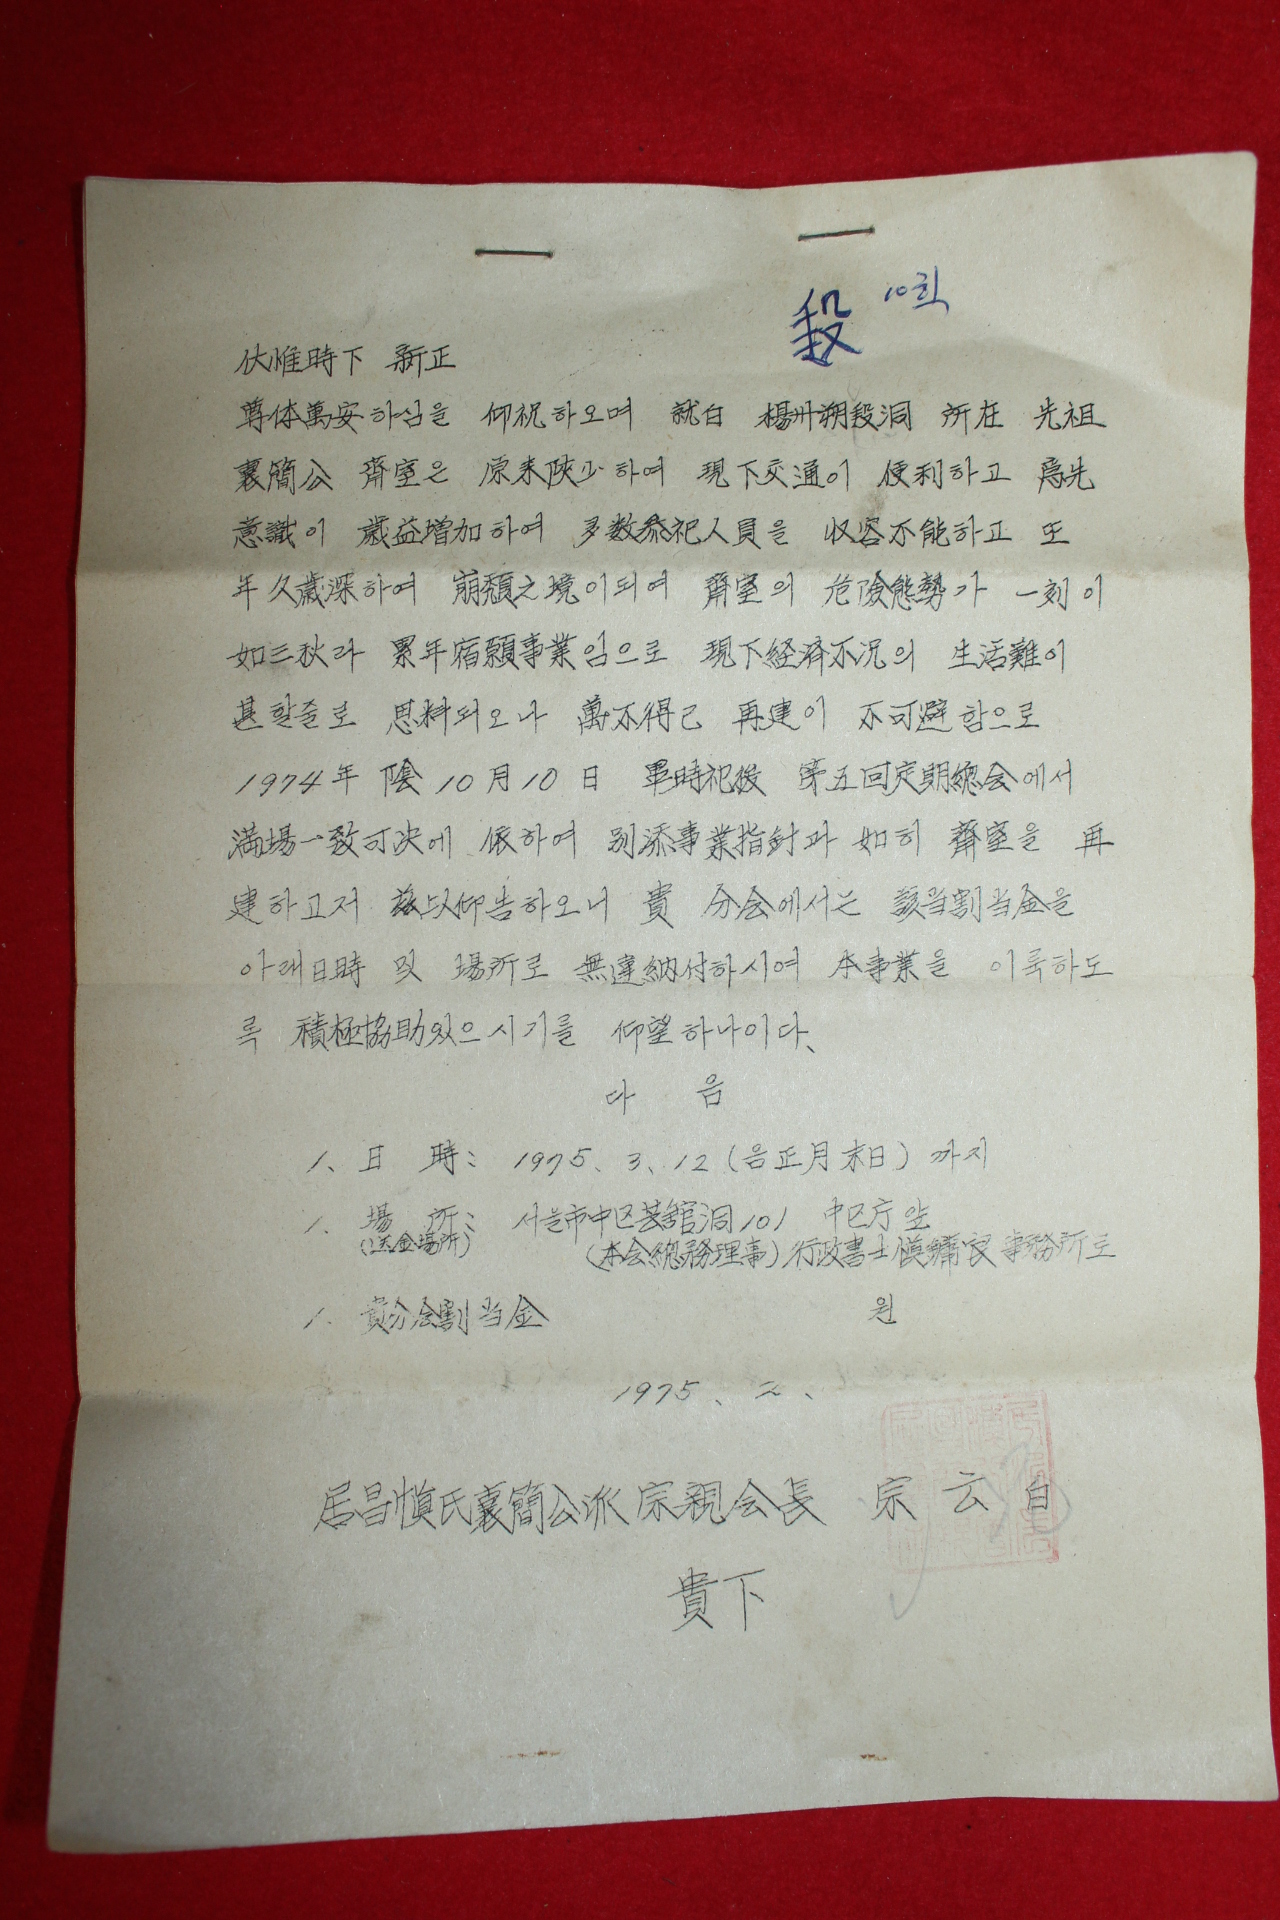 10회
伏惟時下 新正
尊体萬安하심을 仰祝하오며 就白 楊州 所在 先祖
襄簡公 齋室은 原来陜少하여 現下交通이 便利하고 爲先
意識이 歲益增加하여 多数参祀人員을 収容不能하고 또
年久歲深하여 崩頹之境이되여 齋室의 危險態勢가 一刻이
如三秋라 累年宿願事業임으로 現下経済不况의 生活難이
甚할줄로 思料되오나 萬不得已 再建이 不可避함으로
1974年 陰10月10日 畢時祀後 第五回定期總会에서
満場一致可决에 依하여 別添事業指針과 如히 齋室을 再
建하고저 玆以仰告하오니 貴 分会에서는 該当割当金을
아래日時 및 場所로 無違納付하시여 本事業을 이룩하도
록 積極協助있으시기를 仰望하나이다、
다 음
1、日 時: 1975、3、12(음正月末日)까지
1、場 所: 서울市中区芸舘洞101 中区庁앞
(送金場所) (本会總務理事)行政書士愼鏞 事務所로
1. 貴分会割当金 원
1975、2、
居昌愼氏襄簡公派宗親会長 宗云 白
貴下